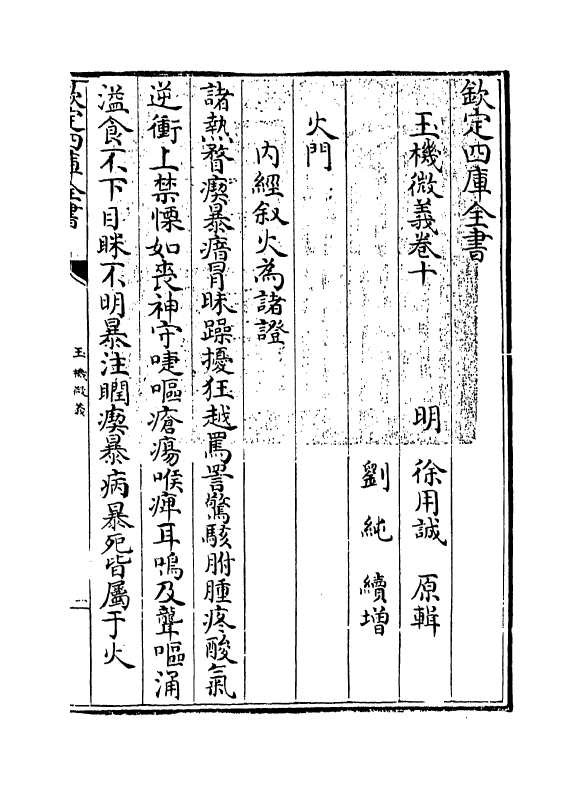 欽定四庫全書
玉機微義卷十
明　徐用誠　原輯
劉　純　續增
火門
內經叙火為諸證
諸熱瞀瘈暴瘖冐昧躁擾狂越罵詈驚駭胕腫疼酸氣
逆衝上禁慄如喪神守啑嘔瘡瘍喉痺耳鳴及聾嘔涌
溢食不下目眛不明暴注瞤瘈暴病暴死皆屬于火
欽定四庫全書
玉機微義
一